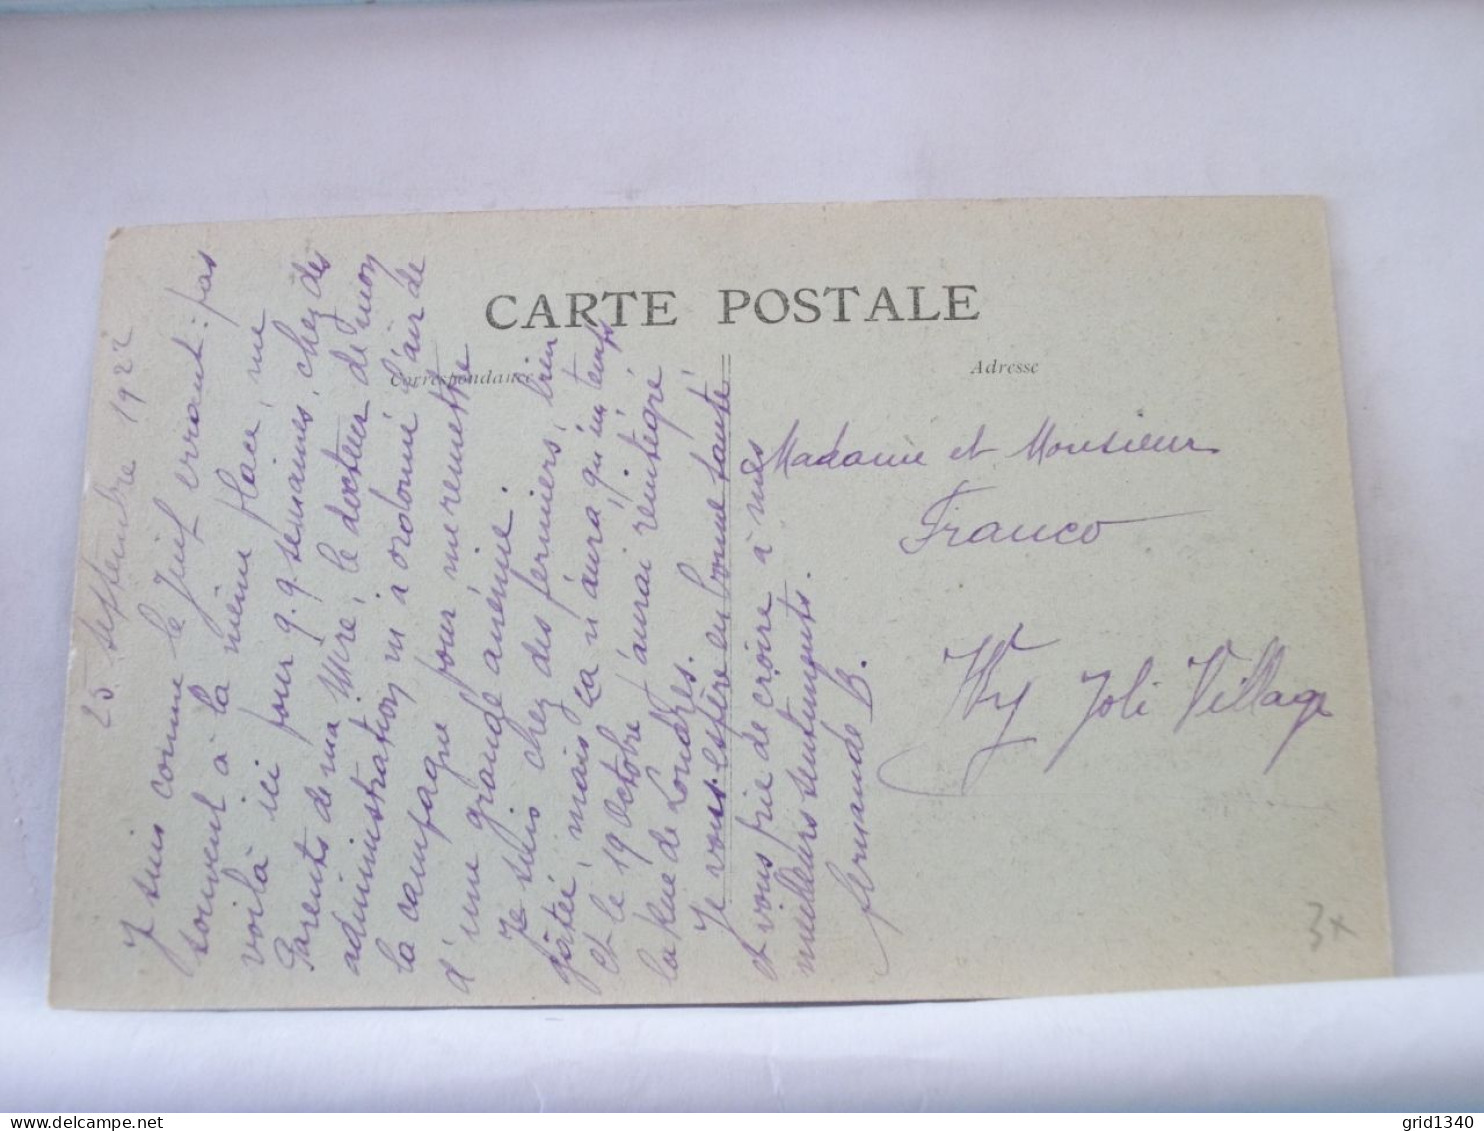 CARTE POSTALE
Correspondance
Adresse
25 septembre 1922
Je suis comme le Juif errant : pas
souvent à la même place, me
voilà ici pour q.q. semaines, chez des
Parents de ma Mère, le docteur de mon
administration m'a ordonné l'air de
la campagne pour me remettre
d'une grande anémie.
Je suis chez des fermiers, bien
gâtée, mais ça n'aura qu'un temps
et le 19 Octobre j'aurai réintégré
la Rue de Londres.
Je vous espère en bonne santé
et vous prie de croire à mes
meilleurs sentiments.
fernande B.
Madame et Monsieur
Franco
Joli Village
3x
www.delcampe.net
grid1340